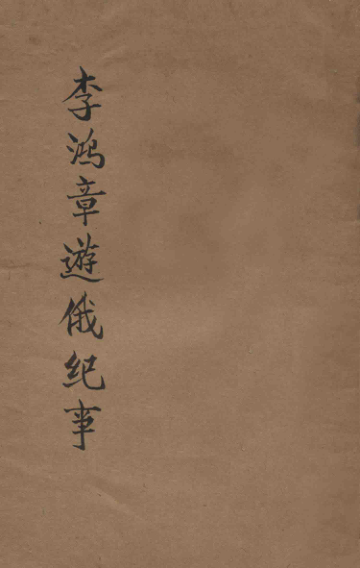 李鴻章遊俄纪事